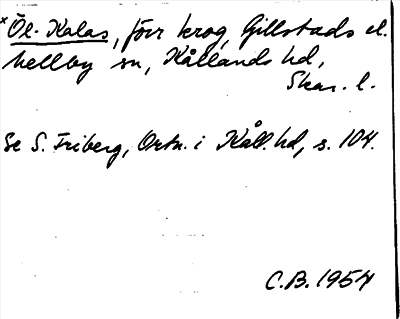 *Öl-Kalas, förr krog, Gillstads el.
hellby sn, Kållands hd,
Skar. l.
Se S. Friberg, Ortn. i Kåll. hd, s. 104.
C.B. 1954